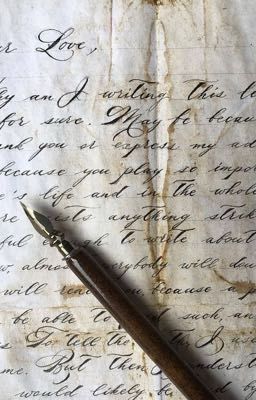 ur Love,
hy am I writing this le
for sure. May be becau
nk you or express my ad
because you play so impo
e's life and in the whole
re ists anything strik
ful gh to write about
w, almos rybody will dou
will read n, because a p
be able to d such, an
To tell the th, I us
me. But then I underst
would likely be d by